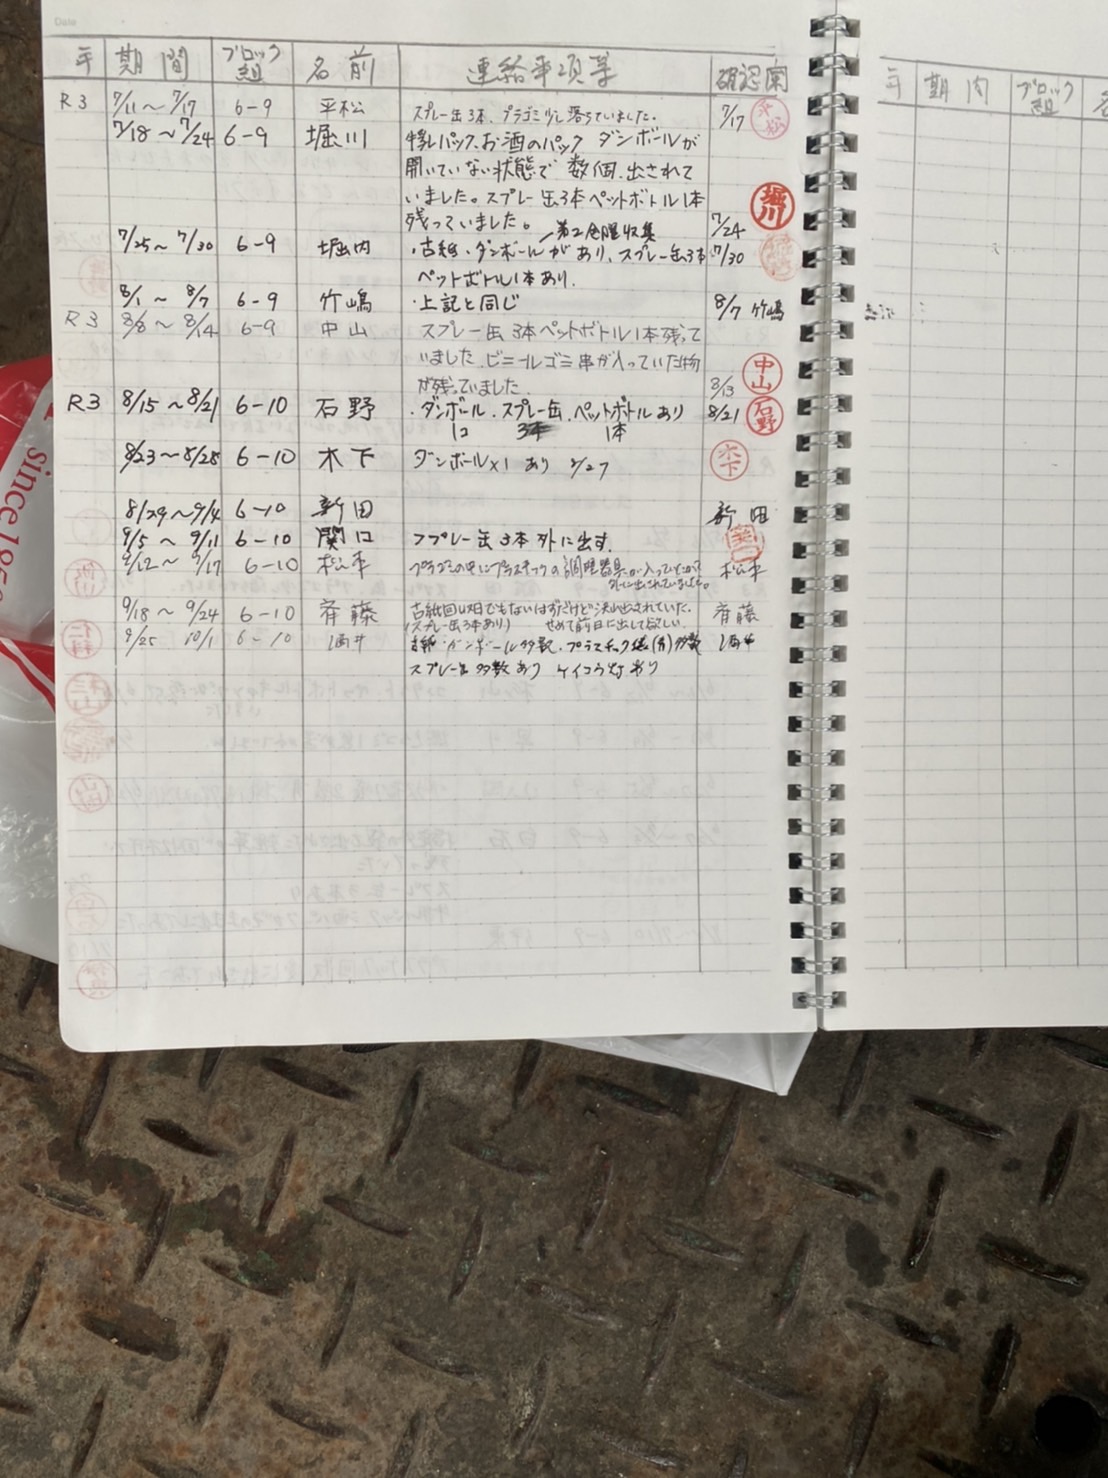 Date
年 期間 ブロック組 名前 連絡事項等 確認欄
R3 7/11～7/17 6-9 平松 スプレー缶3本、プラゴミ少し落ちていました。 7/17 平松
7/18～7/24 6-9 堀川 牛乳パック、お酒のパック ダンボールが
開いていない状態で 数個、出されて
いました。スプレー缶3本ペットボトル1本 堀川
残っていました。 7/24
第2金曜収集
7/25～7/30 6-9 堀内 ・古紙・ダンボールがあり、スプレー缶3本 7/30
ペットボトル1本あり.
8/1～8/7 6-9 竹嶋 ・上記と同じ 8/7 竹嶋
R3 8/8～8/14 6-9 中山 スプレー缶 3本ペットボトル1本残って
いました.ビニールゴミ串が入っていた物 中山
が残っていました. 8/13
R3 8/15～8/21 6-10 石野 ・ダンボール、スプレー缶、ペットボトルあり 8/21 石野
1コ 3本 1本
8/23～8/28 6-10 木下 ダンボール×1 あり 8/27 木下
8/29～9/4 6-10 新田 新田
9/5～9/11 6-10 関口 スプレー缶3本外に出す.
9/12～9/17 6-10 松本 プラゴミの中にプラスチックの調理器具が入っていた 松本
外に出されていました。
9/18～9/24 6-10 斉藤 古紙回収日でもないはずだけど沢山出されていた。 斉藤
(スプレー缶3本あり) せめて前日に出して欲しい.
9/25 10/1 6-10 酒井 古紙・ダンボール多数、プラスチック 多数 酒井
スプレー缶多数あり ケイコウ灯あり
年 期間 ブロック組